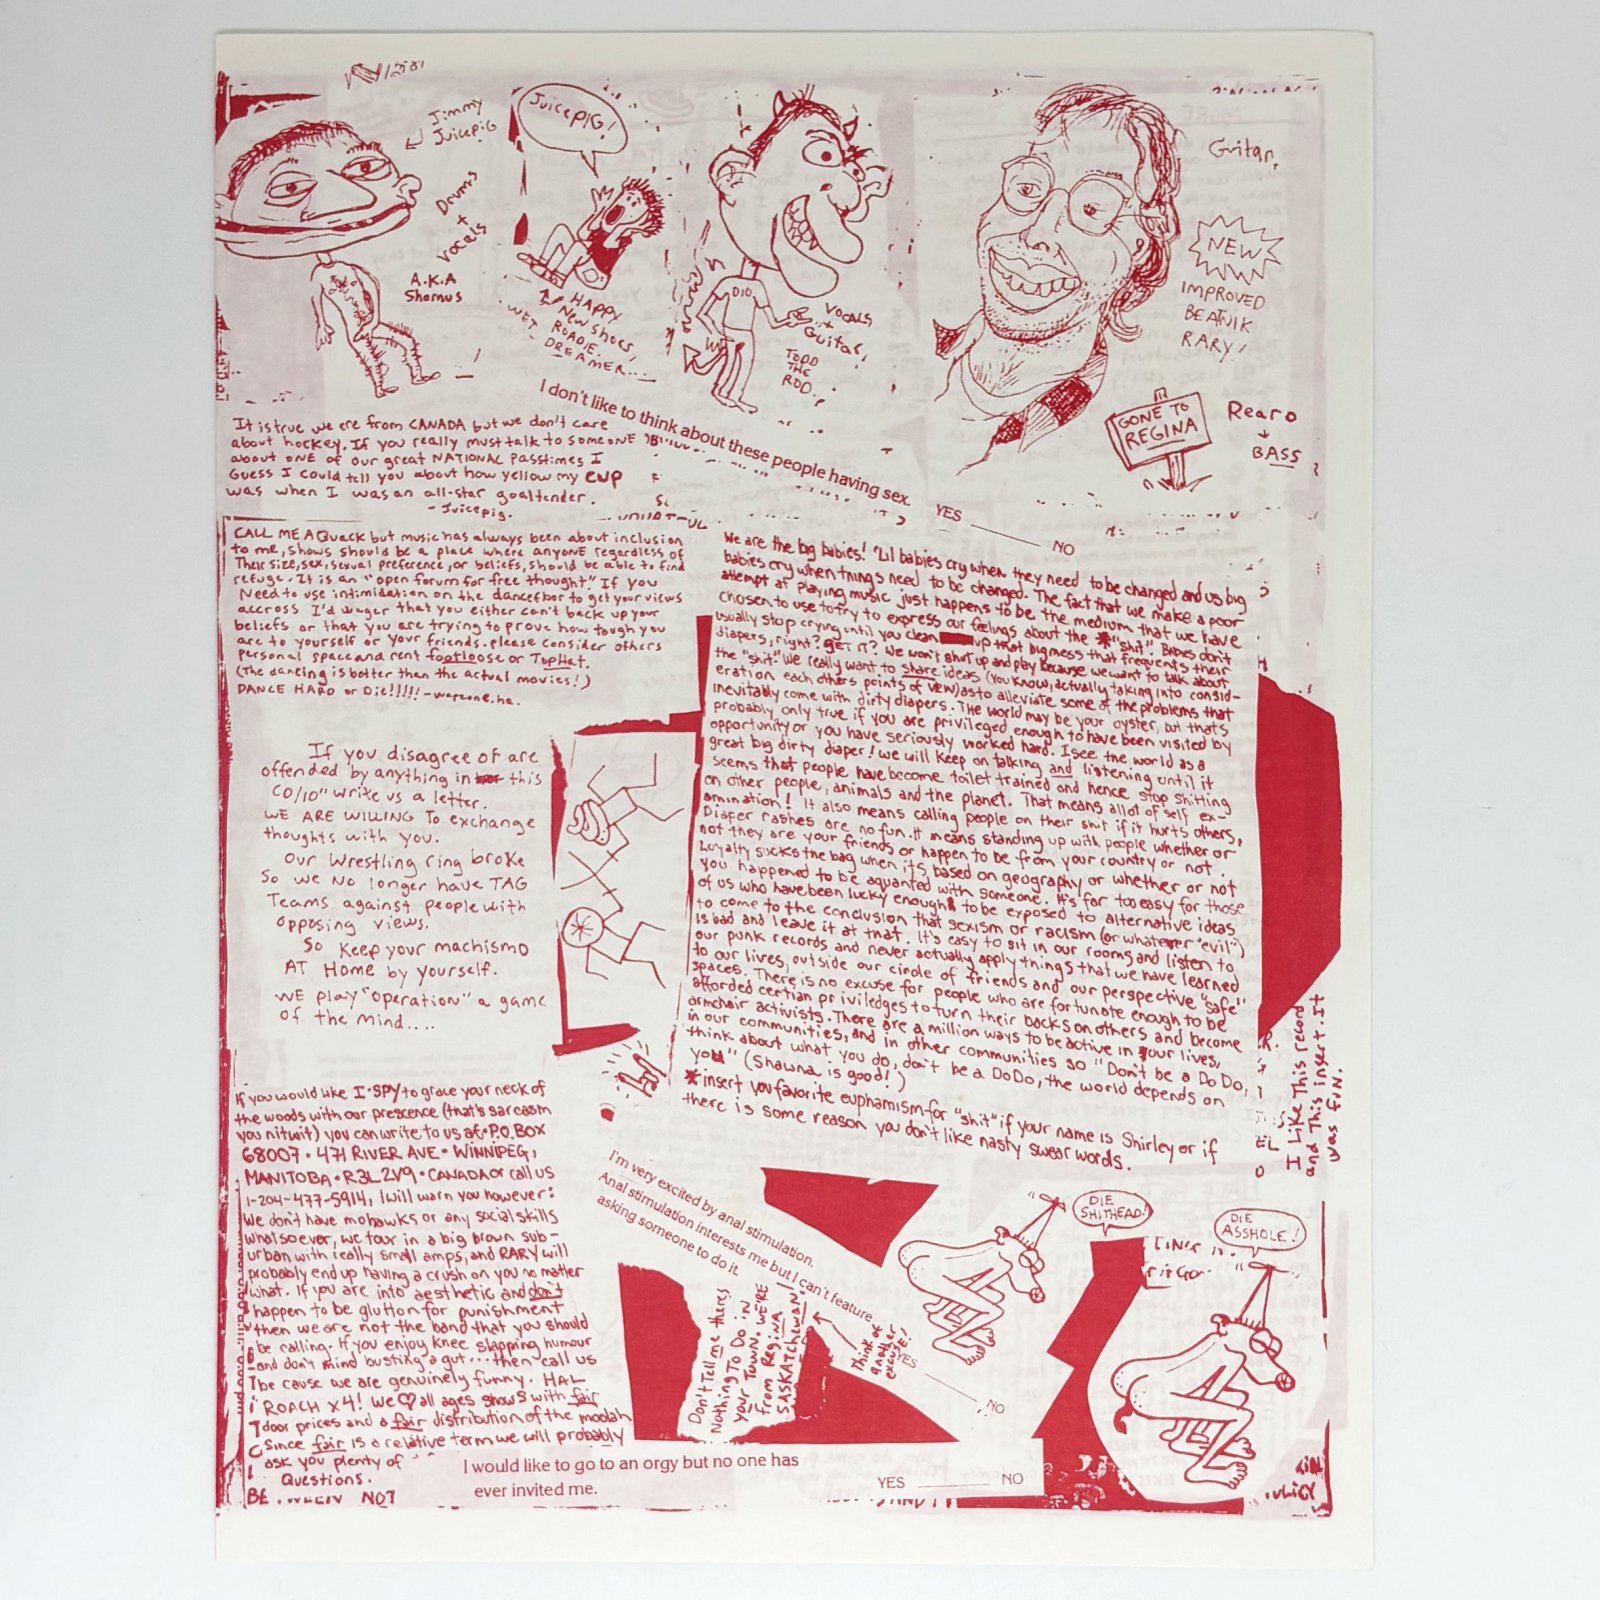 Jimmy
Juicepig
Drums
+
vocals
A.K.A
Shamus
JuicePIG!
HAPPY
New Shoes,
ROADIE.
WET DREAMER....
DIO
VOCALS
+
Guitar!
TODD
THE
ROD.?
Guitar,
NEW
IMPROVED
BEATNIK
RARY!
GONE TO
REGINA
Rearo
BASS
I don't like to think about these people having sex.
YES
NO
It is true we are from CANADA but we don't care
about hockey. If you really must talk to someone
about ONE of our great NATIONAL PASStimes I
Guess I could tell you about how yellow my cup
was when I was an all-star goaltender.
- Juicepig.
CALL ME A Quack but music has always been about inclusion
to me, shows should be a place where anyone regardless of
Their size, sex, sexual preference, or beliefs, should be able to find
refuge. It is an "open forum for free thought" If you
Need to use intimidation on the dancefloor to get your views
accross I'd wager that you either can't back up your
beliefs or that you are trying to prove how tough you
are to yourself or your friends. please consider others
personal space and rent footloose or TopHat.
(The dancing is better than the actual movies!)
DANCE HARD or Die!!!!! - warzone.ha.
If you disagree of are
offended by anything in this
CD/10" write us a letter.
WE ARE WILLING To exchange
thoughts with you.
Our Wrestling ring broke
So we No longer have TAG
Teams against people with
opposing views.
So Keep your machismo
AT Home by yourself.
WE play "operation" a game
of the mind....
We are the big babies! "Lil babies cry when they need to be changed and us big
babies cry when things need to be changed. The fact that we make a poor
attempt at playing music just happens to be the medium that we have
chosen to use to try to express our feelings about the *"shit". Babies don't
usually stop crying until you clean up that big mess that frequents their
diapers, right? GET IT? We won't shut up and play because we want to talk about
the "shit". We really want to share ideas (You Know, actually taking into consid-
eration each others points of view) as to alleviate some of the problems that
inevitably come with dirty diapers. The world may be your oyster, but that's
probably only true if you are privileged enough to have been visited by
opportunity or you have seriously worked hard. I see the world as a
great big dirty diaper! we will keep on talking and listening until it
seems that people have become toilet trained and hence stop shitting
on other people, animals and the planet. That means allot of self ex-
amination! It also means calling people on their shit if it hurts others,
Diaper rashes are no fun. It means standing up with people whether or
not they are your friends or happen to be from your country or not.
Loyalty sucks the bag when it's based on geography or whether or not
you happened to be aquanted with someone. It's far too easy for those
of us who have been lucky enough to be exposed to alternative ideas
to come to the conclusion that sexism or racism (or whatever "evil")
is bad and leave it at that. It's easy to sit in our rooms and listen to
our punk records and never actually apply things that we have learned
to our lives, outside our circle of friends and our perspective "safe"
spaces. There is no excuse for people who are fortunate enough to be
afforded certian priviledges to turn their backs on others and become
armchair activists. There are a million ways to be active in your lives,
in our communities, and in other communities so "Don't be a DoDo,
think about what you do, don't be a DoDo, the world depends on
you" (Shawna is good!)
*insert you favorite euphamism for "shit" if your name is Shirley or if
there is some reason you don't like nasty swear words.
I Like This record
and This insert. It
was fun.
If you would like I•SPY to grace your neck of
the woods with our prescence (that's sarcasm
you nitwit) you can write to us at•P.O. BOX
68007•471 RIVER AVE•WINNIPEG,
MANITOBA•R3L2V9•CANADA or call us
1-204-477-5914, I will warn you however:
We don't have mohawks or any social skills
whatsoever, we tour in a big brown sub-
urban with really small amps, and RARY will
probably end up having a crush on you no matter
what. If you are into aesthetic and don't
happen to be glutton for punishment
then we are not the band that you should
be calling. If you enjoy knee slapping humour
and don't mind busting a gut...then call us
be cause we are genuinely funny. HAL
ROACH x4! We ♡ all ages shows with fair
door prices and a fair distribution of the moolah
Since fair is a relative term we will probably
ask you plenty of
Questions.
I'm very excited by anal stimulation.
Anal stimulation interests me but I can't feature
asking someone to do it.
YES
NO
Don't Tell me theres
Nothing To Do in
your Town. We're
from Regina
SASKATCHEWAN!
Think of
another
excuse!
DIE
SHITHEAD!
DIE
ASSHOLE!
I would like to go to an orgy but no one has
ever invited me.
YES
NO